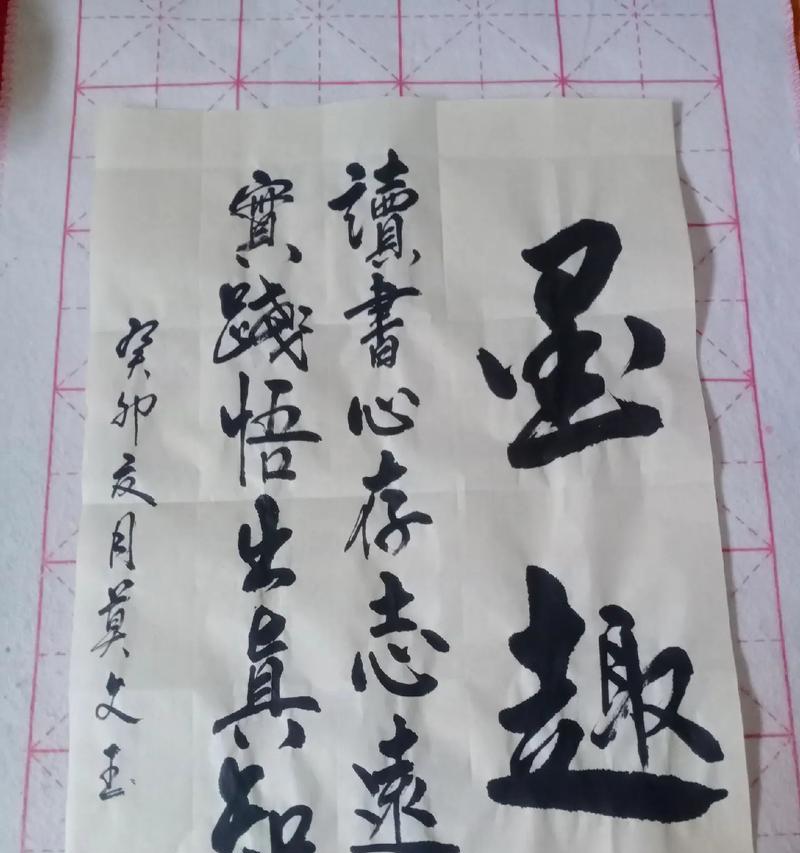 墨趣
讀書心存志遠
實踐悟出真知
癸卯夏月莫文玉